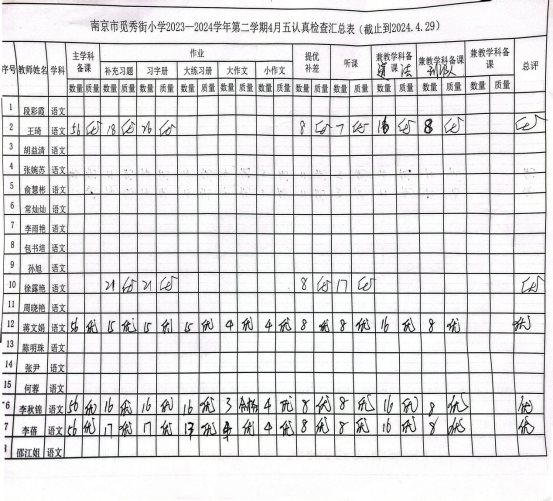 南京市觅秀街小学2023—2024学年第二学期4月五认真检查汇总表（截止到2024.4.29）
序号 教师姓名 学科 主学科备课 作业 提优补差 听课 兼教学科备课 道法 兼教学科备课 兼教学科备课 总评
补充习题 习字册 大练习册 大作文 小作文
数量 质量 数量 质量 数量 质量 数量 质量 数量 质量 数量 质量 数量 质量 数量 质量 数量 质量 数量 质量 数量 质量
1 段彩霞 语文
2 王琦 语文 56 优 18 优 26 优 8 优 7 优 16 优 8 优 优
3 胡益清 语文
4 张婉苏 语文
5 俞慧彬 语文
6 常灿灿 语文
7 李雨艳 语文
8 包书培 语文
9 孙旭 语文
10 徐露艳 语文 21 优 21 优 8 优 17 优 优
11 周晓艳 语文
12 蒋文娟 语文 56 优 15 优 15 优 15 优 4 优 4 优 8 优 8 优 16 优 8 优 优
13 陈明珠 语文
14 张尹 语文
15 何蓉 语文
6 李秋锦 语文 56 优 16 优 16 优 16 优 3 4 优 8 优 8 优 16 优 8 优 优
7 李蓓 语文 56 优 17 优 17 优 17 优 4 优 4 优 8 优 8 优 16 优 8 优 优
邵江姐 语文